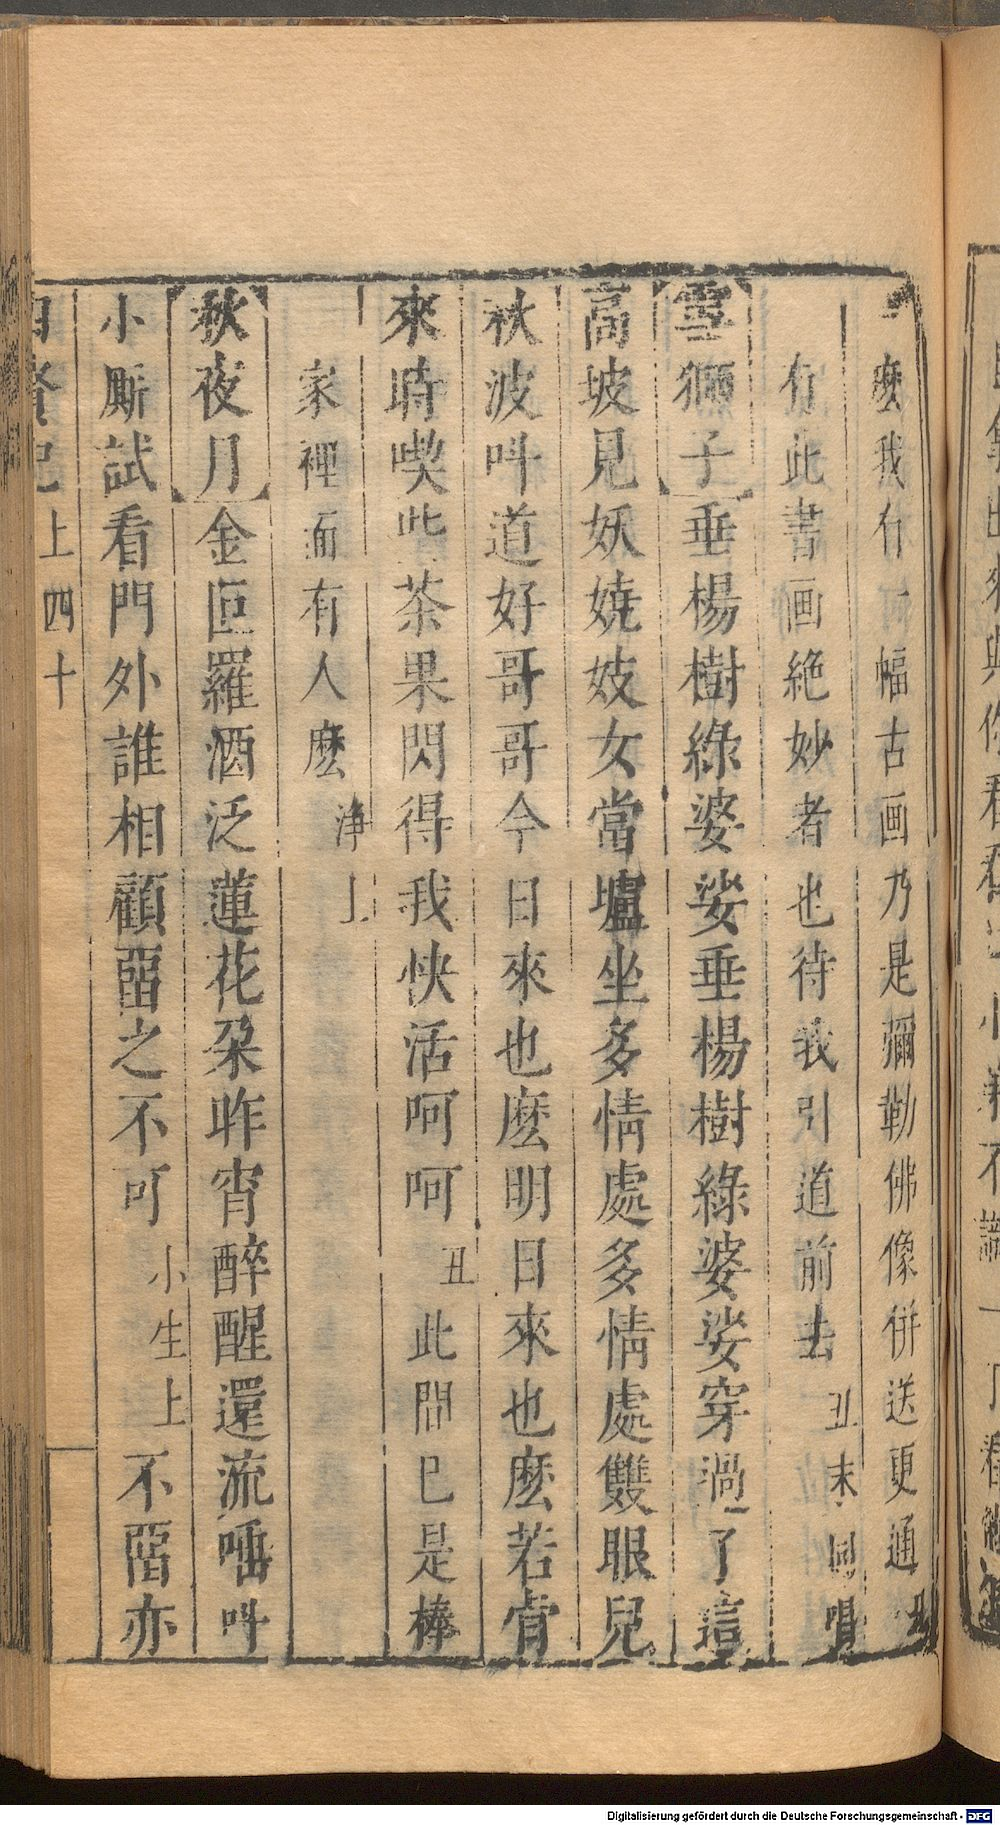 麼我有一幅古画乃是彌勒佛像併送更通丑
有此書画絶妙者也待我引道前去丑末同唱
雪獅子垂楊樹綠婆娑垂楊樹綠婆娑穿過了這
高坡見妖嬈妓女當壚坐多情處多情處雙眼兒
秋波呌道好哥哥今日來也麽明日來也麽若肯
來時喫些茶果閃得我快活呵呵丑此間已是棒
家裡面有人麽淨上
秋夜月金叵羅酒泛蓮花朶昨宵醉醒還流唾呌
小厮試看門外誰相顧畱之不可小生上不畱亦
上四十
Digitalisierung gefördert durch die Deutsche Forschungsgemeinschaft - DFG